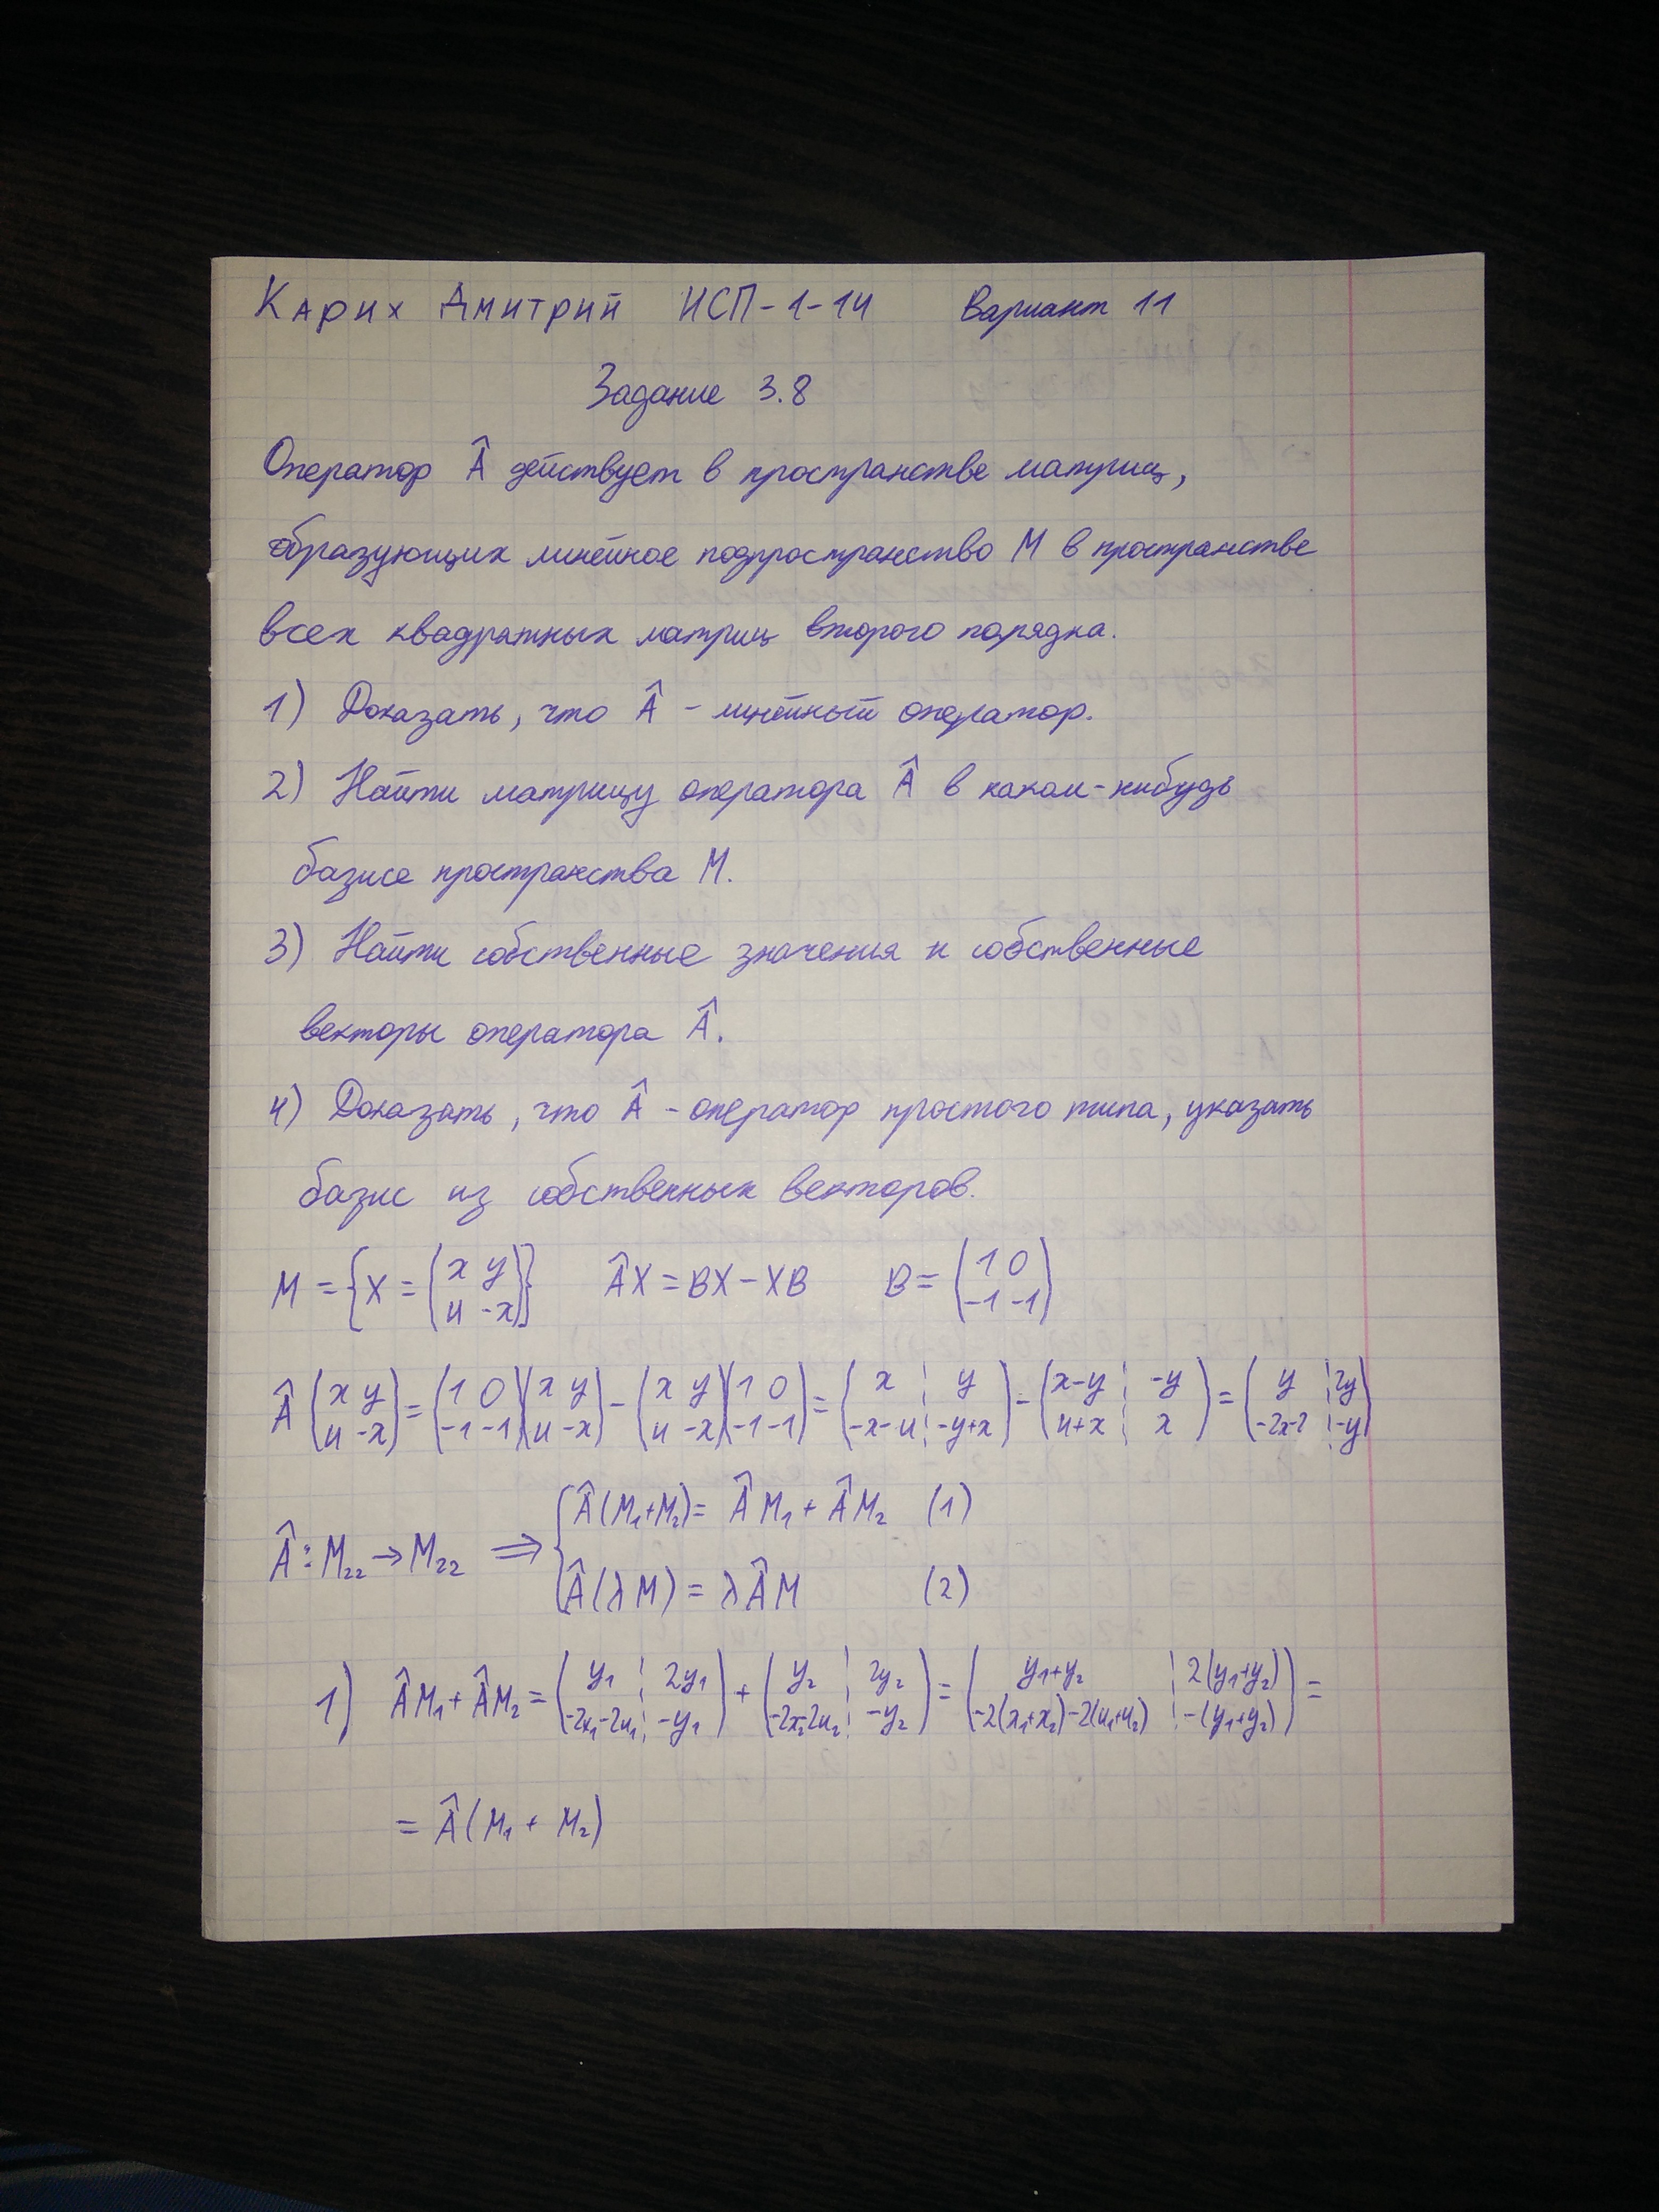 Карих Дмитрий ИСП-1-14 Вариант 11
Задание 3.8
Оператор Â действует в пространстве матриц,
образующих линейное подпространство M в пространстве
всех квадратных матриц второго порядка.
1) Доказать, что Â - линейный оператор.
2) Найти матрицу оператора Â в каком-нибудь
базисе пространства M.
3) Найти собственные значения и собственные
векторы оператора Â.
4) Доказать, что Â - оператор простого типа, указать
базис из собственных векторов.
M = {X = (x y; u -x)} ÂX = BX - XB B = (1 0; -1 -1)
Â(x y; u -x) = (1 0; -1 -1)(x y; u -x) - (x y; u -x)(1 0; -1 -1) = (x ¦ y; -x-u ¦ -y+x) - (x-y ¦ -y; u+x ¦ x) = (y ¦ 2y; -2x-2 ¦ -y)
Â: M₂₂ → M₂₂ ⟹ { Â(M₁+M₂) = ÂM₁ + ÂM₂ (1)
Â(λM) = λÂM (2)
1) ÂM₁ + ÂM₂ = (y₁ ¦ 2y₁; -2x₁-2u₁ ¦ -y₁) + (y₂ ¦ 2y₂; -2x₂-2u₂ ¦ -y₂) = (y₁+y₂ ¦ 2(y₁+y₂); -2(x₁+x₂)-2(u₁+u₂) ¦ -(y₁+y₂)) =
= Â(M₁ + M₂)